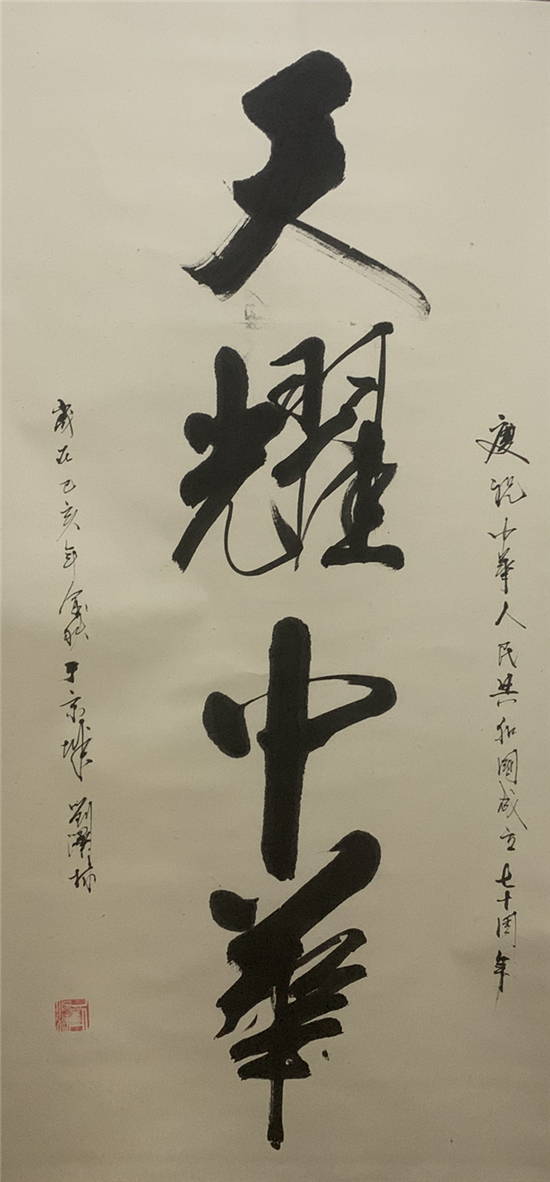 慶祝中華人民共和國成立七十周年
天耀中華
歲在己亥年金秋于京城 劉漢